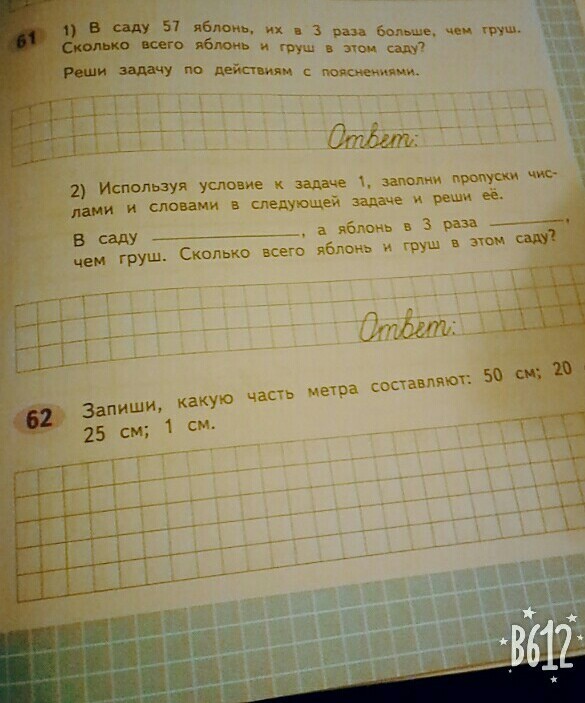 61 1) В саду 57 яблонь, их в 3 раза больше, чем груш.
Сколько всего яблонь и груш в этом саду?
Реши задачу по действиям с пояснениями.
Ответ:
2) Используя условие к задаче 1, заполни пропуски чис-
лами и словами в следующей задаче и реши её.
В саду ______, а яблонь в 3 раза ______,
чем груш. Сколько всего яблонь и груш в этом саду?
Ответ:
62 Запиши, какую часть метра составляют: 50 см; 20
25 см; 1 см.
B612